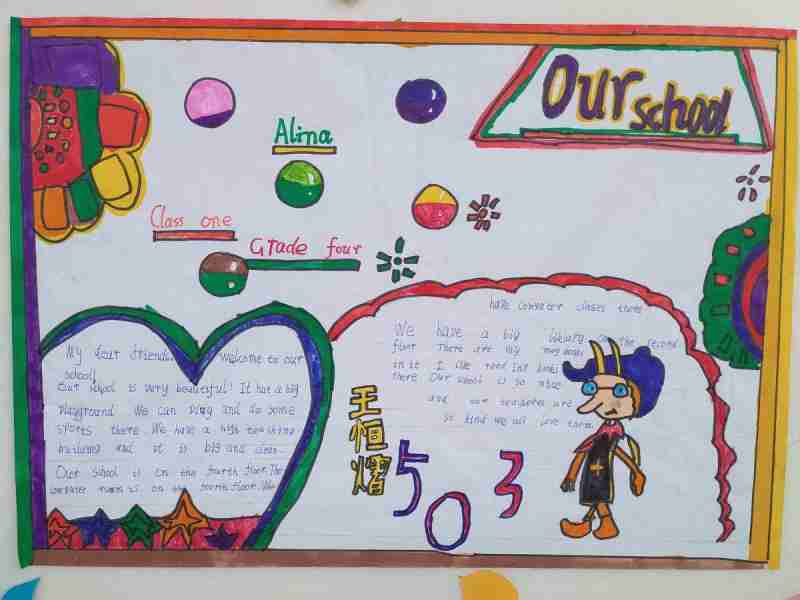 Our school
Alina
Class one
Grade four
My dear friends welcome to our
school
Our school is very beautiful! It has a big
playground We can play and do some
sports there We have a high teaching
building and it is big and clean
Our school is on the fourth floor. The
computer room is on the fourth floor. We
have computer classes there
We have a big library on the second
floor There are many books
in it I like reading books
there Our school is so nice
and our teachers are
so kind we all love them
王恒熠
503